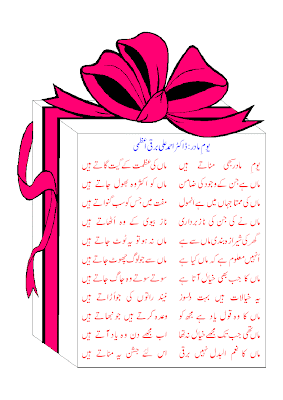 یوم مادر: ڈاکٹر احمد علی برقی اعظمی
یوم مادر سبھی مناتے ہیں ماں کی عظمت کے گیت گاتے ہیں
ماں ہے جن کے وجود کی ضامن ماں کو اکثر وہ بھول جاتے ہیں
ماں کی ممتا جہاں میں ہے انمول مفت میں جس کو سب گنواتے ہیں
ماں نے کی جن کی ناز برداری ناز بیوی کے وہ اُٹھاتے ہیں
گھر کی شیرازہ بندی ماں سے ہے ماں نہ ہو تو یہ ٹوٹ جاتے ہیں
اُنھیں معلوم ہے کہ ماں کیا ہے ماں سے جو لوگ چھوٹ جاتے ہیں
ماں کا جب بھی خیال آتا ہے سوتے سوتے وہ جاگ جاتے ہیں
یہ خیالات ہیں بہت دلسوز نیند راتوں کی جو اڑاتے ہیں
ماں کا وہ قول یاد ہے مجھ کو وعدہ کرتے ہیں جو نبھاتے ہیں
ماں تھی جب تک مجھے خیال نہ تھا اب مجھے دن وہ یاد آتے ہیں
ماں کا نعم البدل نہیں برقی اس لئے جشن یہ مناتے ہیں